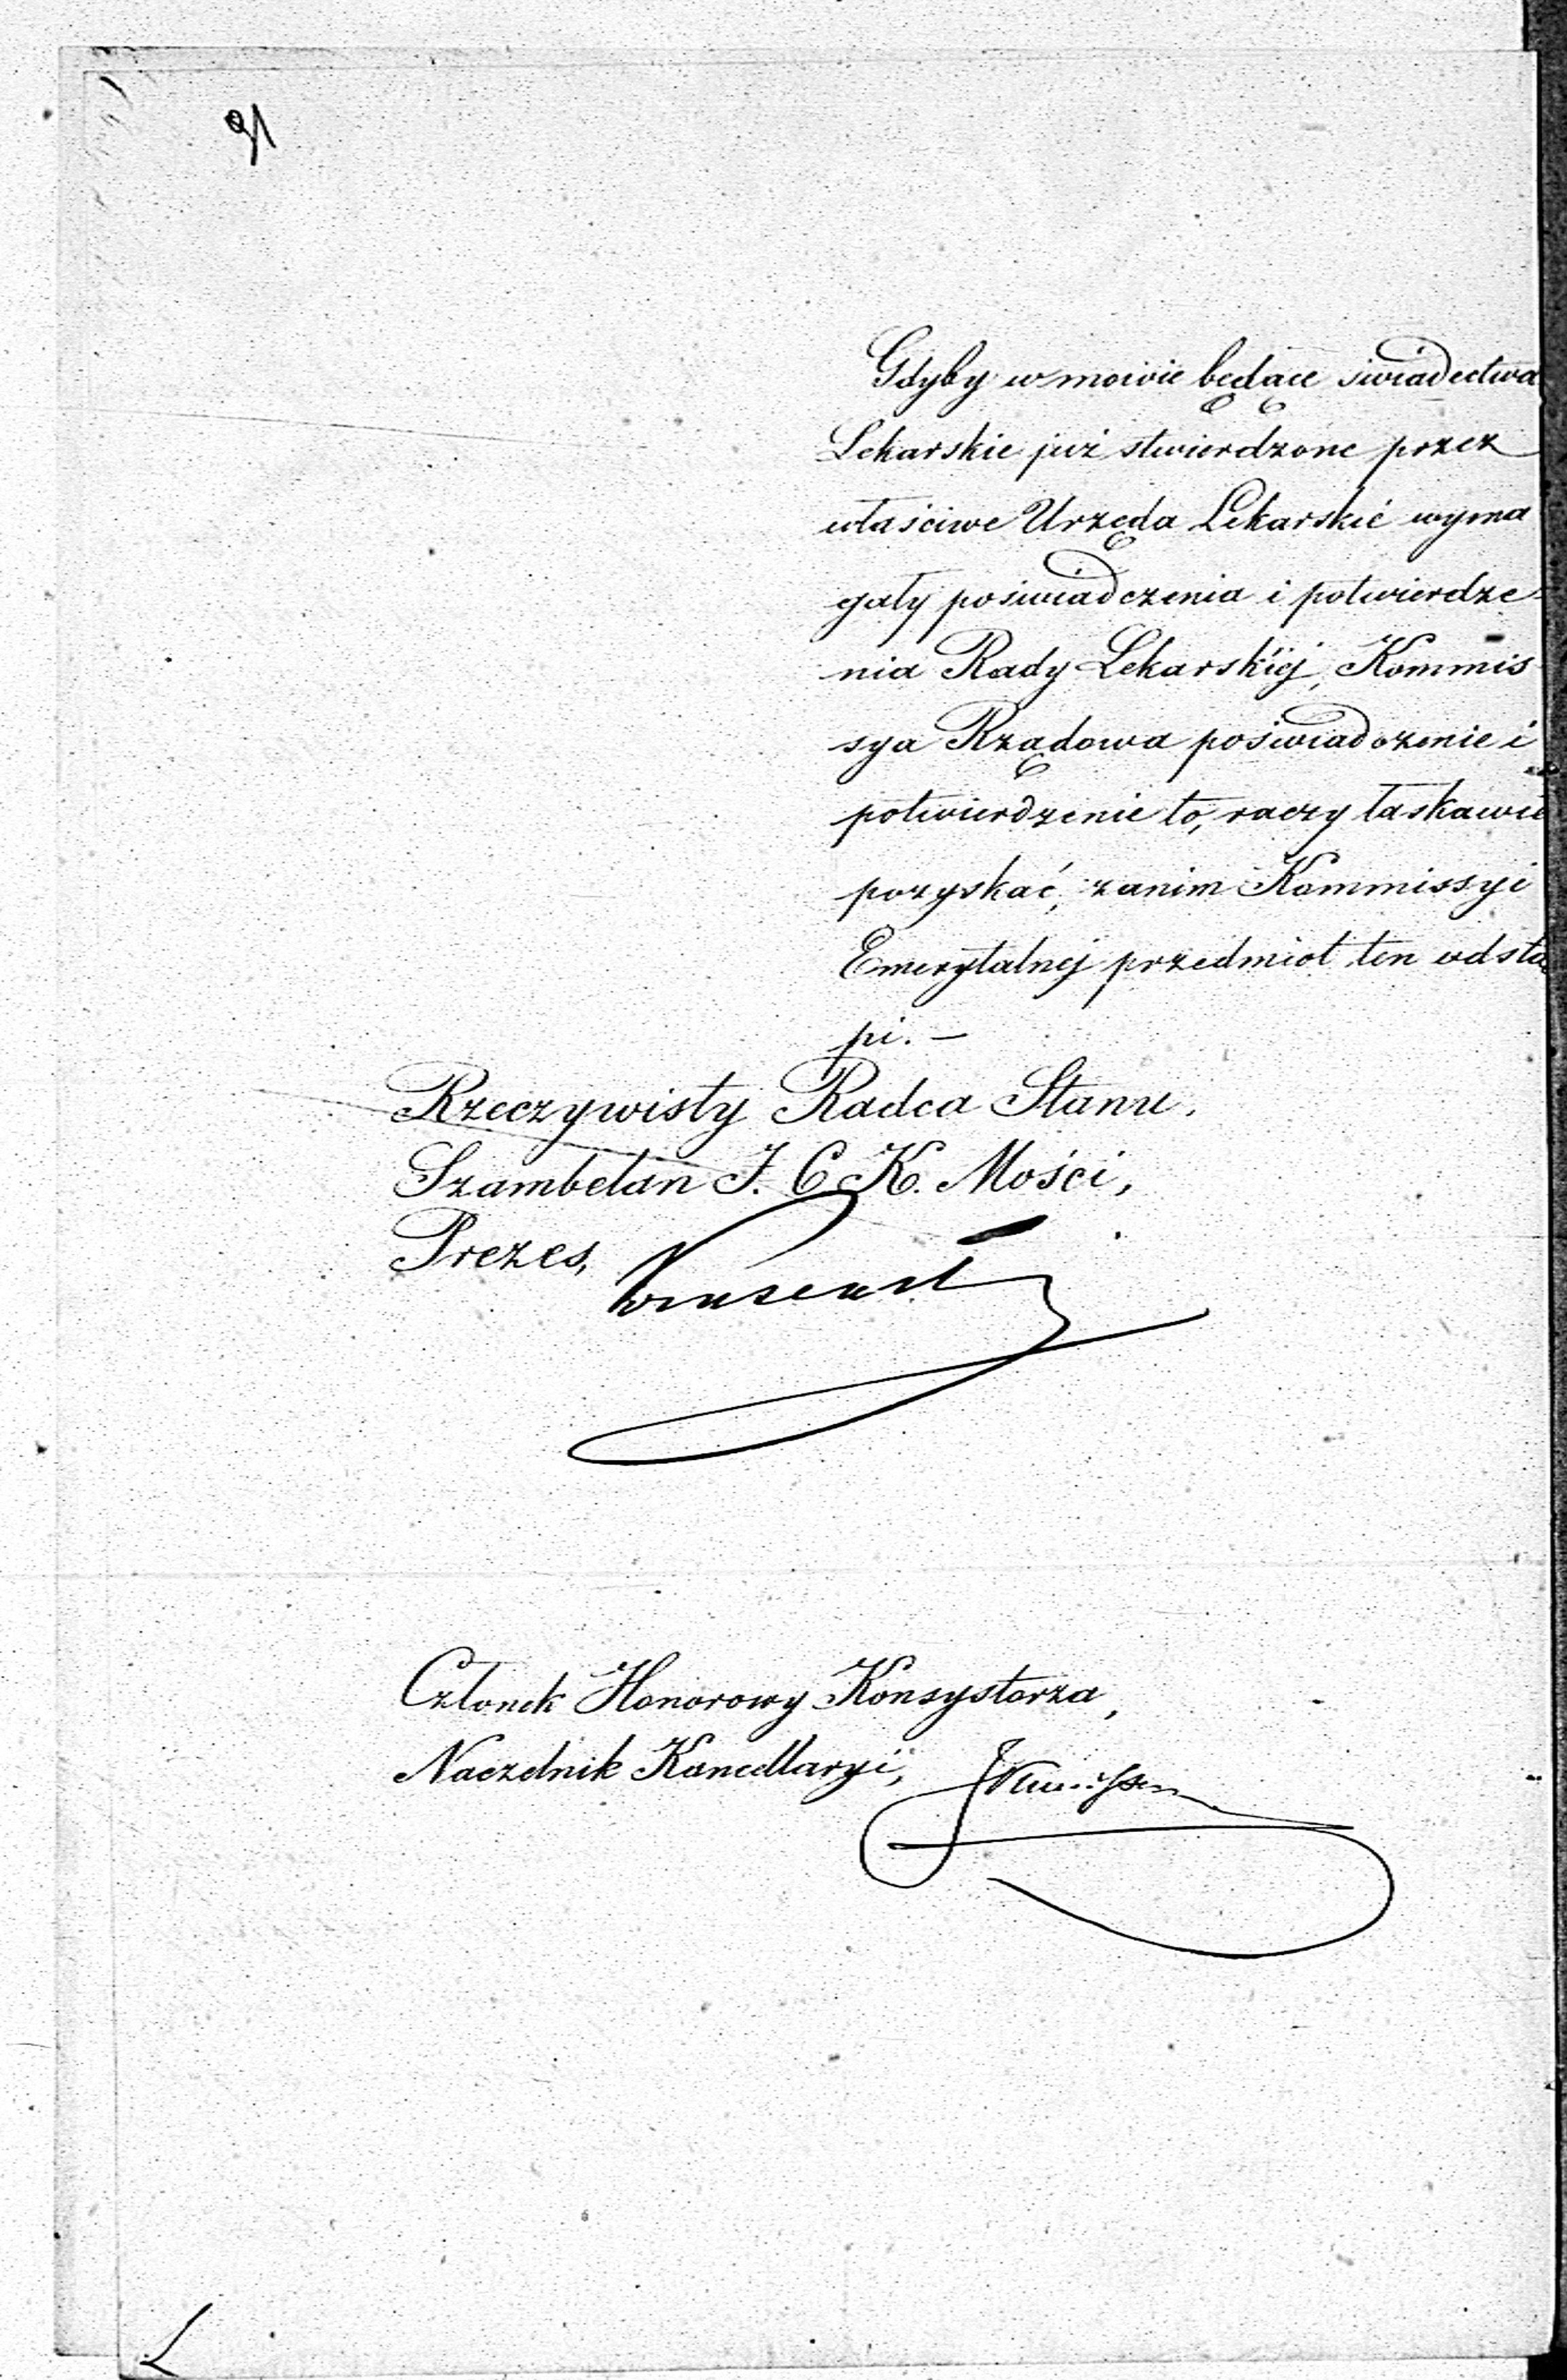 91
Gdyby w mowie będące świadectwa
Lekarskie już stwierdzone przez
właściwe Urzęda Lekarskie wyma
gały poświadczenia i potwierdze-
nia Rady Lekarskiej, Kommis
sya Rządowa poświadczenie i
potwierdzenie to, raczy łaskawie
pozyskać, zanim Kommissyi
Emerytalnej przedmiot ten odstą
pi. —
Rzeczywisty Radca Stanu,
Szambelan J. C K. Mości,
Prezes,
Członek Honorowy Konsystorza,
Naczelnik Kancellaryi,